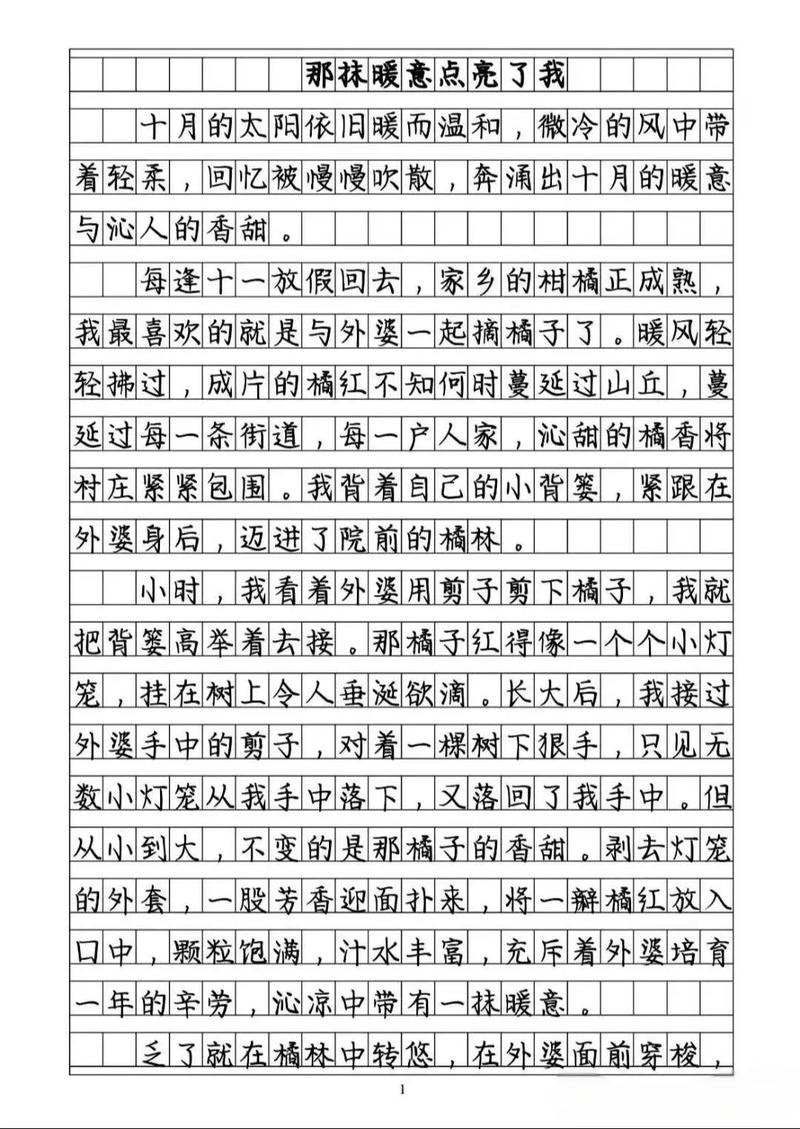 那抹暖意点亮了我
十月的太阳依旧暖而温和，微冷的风中带
着轻柔，回忆被慢慢吹散，奔涌出十月的暖意
与沁人的香甜。
每逢十一放假回去，家乡的柑橘正成熟，
我最喜欢的就是与外婆一起摘橘子了。暖风轻
轻拂过，成片的橘红不知何时蔓延过山丘，蔓
延过每一条街道，每一户人家，沁甜的橘香将
村庄紧紧包围。我背着自己的小背篓，紧跟在
外婆身后，迈进了院前的橘林。
小时，我看着外婆用剪子剪下橘子，我就
把背篓高举着去接。那橘子红得像一个个小灯
笼，挂在树上令人垂涎欲滴。长大后，我接过
外婆手中的剪子，对着一棵树下狠手，只见无
数小灯笼从我手中落下，又落回了我手中。但
从小到大，不变的是那橘子的香甜。剥去灯笼
的外套，一股芳香迎面扑来，将一瓣橘红放入
口中，颗粒饱满，汁水丰富，充斥着外婆培育
一年的辛劳，沁凉中带有一抹暖意。
乏了就在橘林中转悠，在外婆面前穿梭，
1